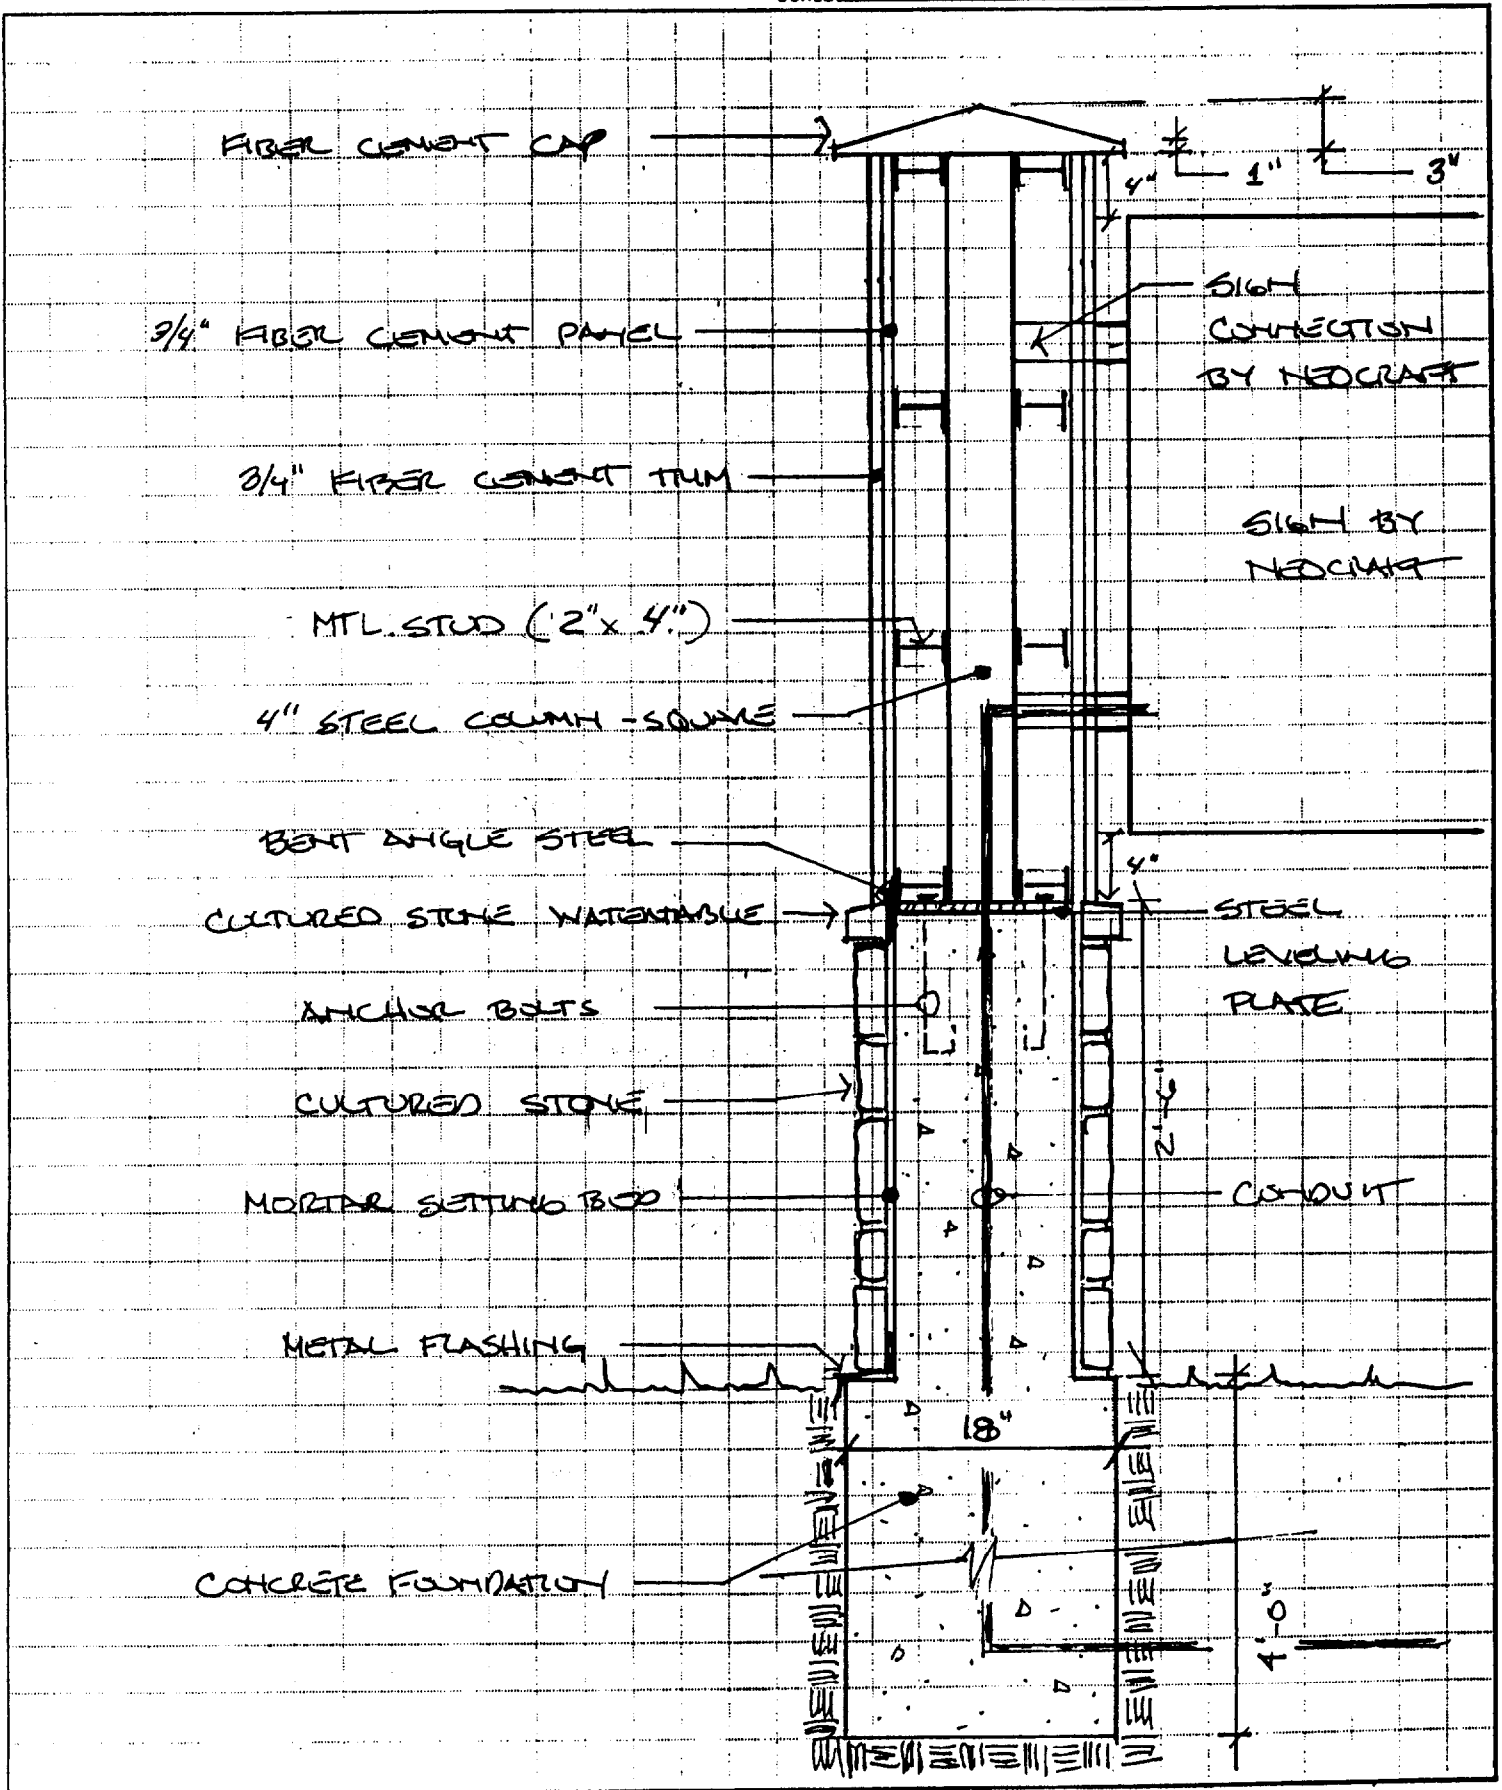 FIBER CEMENT CAP
1"
3"
4"
SIGN
CONNECTION
BY NEOCRAFT
3/4" FIBER CEMENT PANEL
3/4" FIBER CEMENT TRIM
SIGN BY
NEOCRAFT
MTL. STUD (2" x 4")
4" STEEL COLUMN - SQUARE
BENT ANGLE STEEL
4"
CULTURED STONE WATERTABLE
STEEL
LEVELING
PLATE
ANCHOR BOLTS
CULTURED STONE
2'-6"
MORTAR SETTING BED
CONDUIT
METAL FLASHING
18"
CONCRETE FOUNDATION
4'-0"